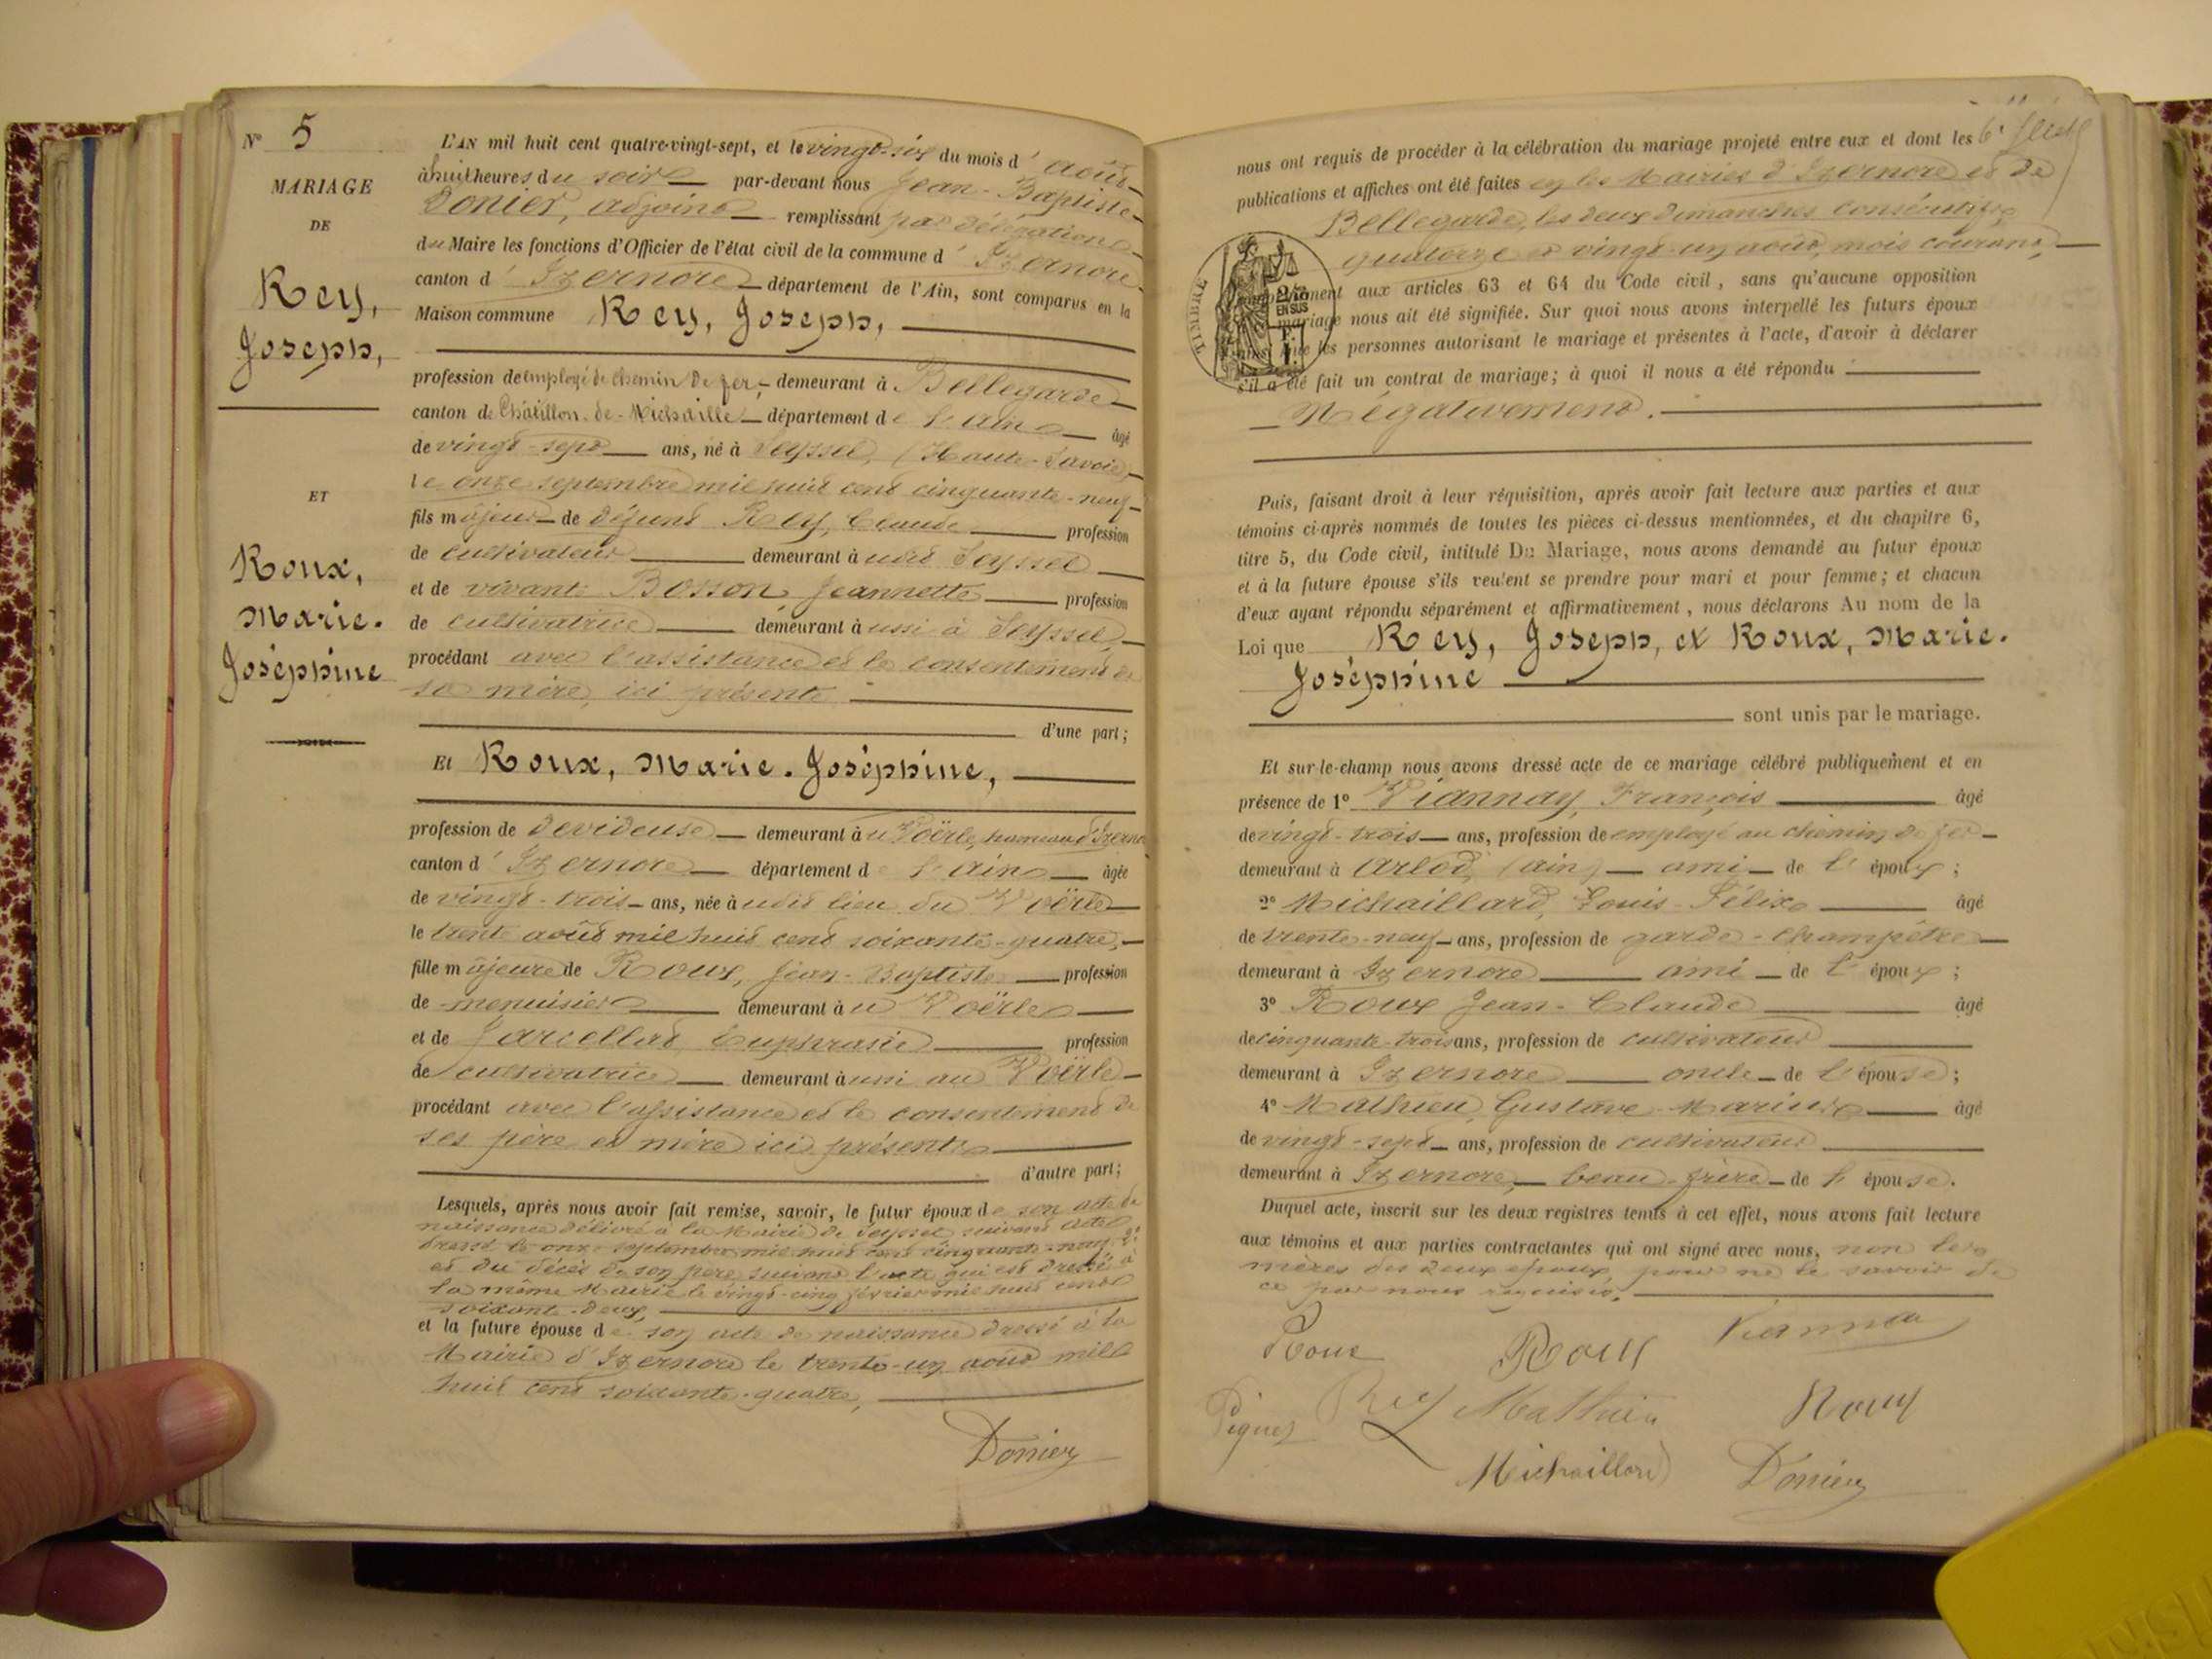 N° 5
MARIAGE
DE
Rey,
Joseph,
ET
Roux,
Marie-
Joséphine
L'AN mil huit cent quatre-vingt-sept, et le vingt-six du mois d'août
à huit heures du soir par-devant nous Jean-Baptiste
Donier, adjoint remplissant par délégation
du Maire les fonctions d'Officier de l'état civil de la commune d'Izernore
canton d'Izernore département de l'Ain, sont comparus en la
Maison commune Rey, Joseph,
profession de employé de chemin de fer, demeurant à Bellegarde
canton de Châtillon-de-Michaille département de l'Ain âgé
de vingt-sept ans, né à Seyssel, (Haute-Savoie)
le onze septembre mil huit cent cinquante-neuf
fils majeur de défunt Rey, Claude profession
de cultivateur demeurant audit Seyssel
et de vivante Bosson Jeannette profession
de cultivatrice demeurant aussi à Seyssel,
procédant avec l'assistance et le consentement de
sa mère, ici présente
d'une part;
Et Roux, Marie-Joséphine,
profession de devideuse demeurant au Voërle, hameau d'Izernore
canton d'Izernore département de l'Ain âgée
de vingt-trois ans, née audit lieu du Voërle
le trente août mil huit cent soixante-quatre,
fille majeure de Roux, Jean-Baptiste profession
de menuisier demeurant au Voërle
et de Jarcellat Euphrasie profession
de cultivatrice demeurant aussi au Voërle
procédant avec l'assistance et le consentement de
ses père et mère ici présents
d'autre part;
Lesquels, après nous avoir fait remise, savoir, le futur époux de son acte de
naissance délivré à la Mairie de Seyssel suivant acte
dressé le onze septembre mil huit cent cinquante-neuf
et du décès de son père suivant l'acte qui est dressé à
la même Mairie le vingt-cinq février mil huit cent
soixante-deux,
et la future épouse de son acte de naissance dressé à la
Mairie d'Izernore le trente-un août mil
huit cent soixante-quatre,
Donier
nous ont requis de procéder à la célébration du mariage projeté entre eux et dont les
publications et affiches ont été faites en les Mairies d'Izernore et de
Bellegarde, les deux dimanches consécutifs,
quatorze et vingt-un août, mois courant,
TIMBRE
2/10
EN SUS
aux articles 63 et 64 du Code civil, sans qu'aucune opposition
mariage nous ait été signifiée. Sur quoi nous avons interpellé les futurs époux
les personnes autorisant le mariage et présentes à l'acte, d'avoir à déclarer
s'il a été fait un contrat de mariage; à quoi il nous a été répondu
Négativement.
Puis, faisant droit à leur réquisition, après avoir fait lecture aux parties et aux
témoins ci-après nommés de toutes les pièces ci-dessus mentionnées, et du chapitre 6,
titre 5, du Code civil, intitulé Du Mariage, nous avons demandé au futur époux
et à la future épouse s'ils veulent se prendre pour mari et pour femme; et chacun
d'eux ayant répondu séparément et affirmativement, nous déclarons Au nom de la
Loi que Rey, Joseph, et Roux, Marie-
Joséphine
sont unis par le mariage.
Et sur-le-champ nous avons dressé acte de ce mariage célébré publiquement et en
présence de 1° Viannay, François âgé
de vingt-trois ans, profession de employé au chemin de fer
demeurant à Arlod, (Ain) ami de l'époux;
2° Michaillard, Louis-Félix âgé
de trente-neuf ans, profession de garde-champêtre
demeurant à Izernore ami de l'époux;
3° Roux Jean-Claude âgé
de cinquante-trois ans, profession de cultivateur
demeurant à Izernore oncle de l'épouse;
4° Mathieu, Gustave-Marius âgé
de vingt-sept ans, profession de cultivateur
demeurant à Izernore, beau-frère de l'épouse.
Duquel acte, inscrit sur les deux registres tenus à cet effet, nous avons fait lecture
aux témoins et aux parties contractantes qui ont signé avec nous, non les
mères des deux époux, pour ne le savoir de
ce par nous requises.
Roux Roux
Rey Mathieu Roux
Michaillard Donier